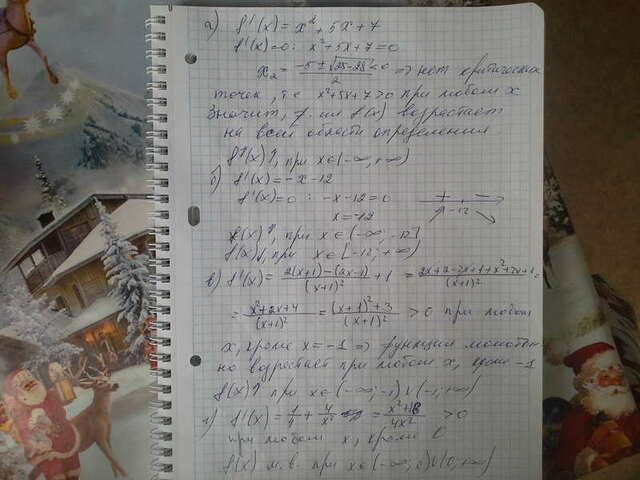 а) f'(x) = x² + 5x + 7
f'(x)=0: x²+5x+7=0
x₂ = (-5 ± √(25-28))/2 <0 => нет критических
точек, т.е x²+5x+7>0 при любом x
Значит, f(x) возрастает
на всей области определения
f(x)↑, при x∈(-∞,+∞)
б) f'(x) = -x-12
f'(x)=0: -x-12=0
+ -
x=-12
-12
f(x)↑, при x∈(-∞;-12]
f(x)↓, при x∈[-12;+∞)
в) f'(x) = (2(x+1)-(2x-1))/(x+1)² + 1 = (2x+2-2x+1+x²+2x+1)/(x+1)² =
= (x²+2x+4)/(x+1)² = ((x+1)²+3)/(x+1)² >0 при любом
x, кроме x=-1 => функция монотон
но возрастает при любом x, кроме -1
f(x)↑ при x∈(-∞;-1)∪(-1;+∞)
г) f'(x) = 1/4 + 4/x² = (x²+16)/4x² >0
при любом x, кроме 0
f(x) м.в. при x∈(-∞;0)∪(0;+∞)